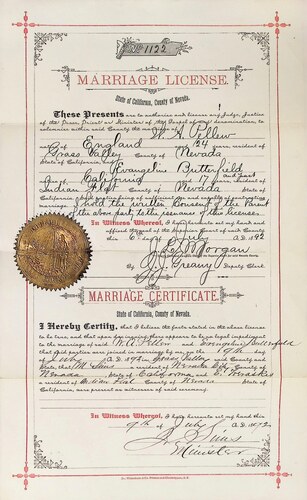 No 1122
MARRIAGE LICENSE.
State of California, County of Nevada.
These Presents are to authorize and license any Judge, Justice
of the Peace, Priest or Minister of the Gospel of any denomination, to
solemnize within said County the marriage of
W. A. Pellew
native of England aged 24 years, resident of
Grass Valley County of Nevada
State of California, and
Evangeline Butterfield
native of California aged 17 years, resident of
Indian Flat County of Nevada
I hold the written Consent of the Parent
of the above party to the issuance of this license.
In Witness Whereof, I have hereunto
official the seal of the Superior Court of said County this
day of July A.D. 1892
Morgan
By Deputy Clerk.
MARRIAGE CERTIFICATE
State of California, County of Nevada.
I Hereby Certify, that I believe the facts stated in the above license
to be true, and that upon due inquiry there appears to be no legal impediment
to the marriage of said W. A. Pellew and Evangeline Butterfield
that said parties were joined in marriage by me, on the
day of July A.D. 1892
a resident of Nevada City County of
Nevada State of California, and
a resident of Indian Flat County of Nevada State of
California, were present as witnesses of said ceremony.
In Witness Whereof, I have hereunto set my hand this
9th of July A.D. 1892
J. Sims
Minister